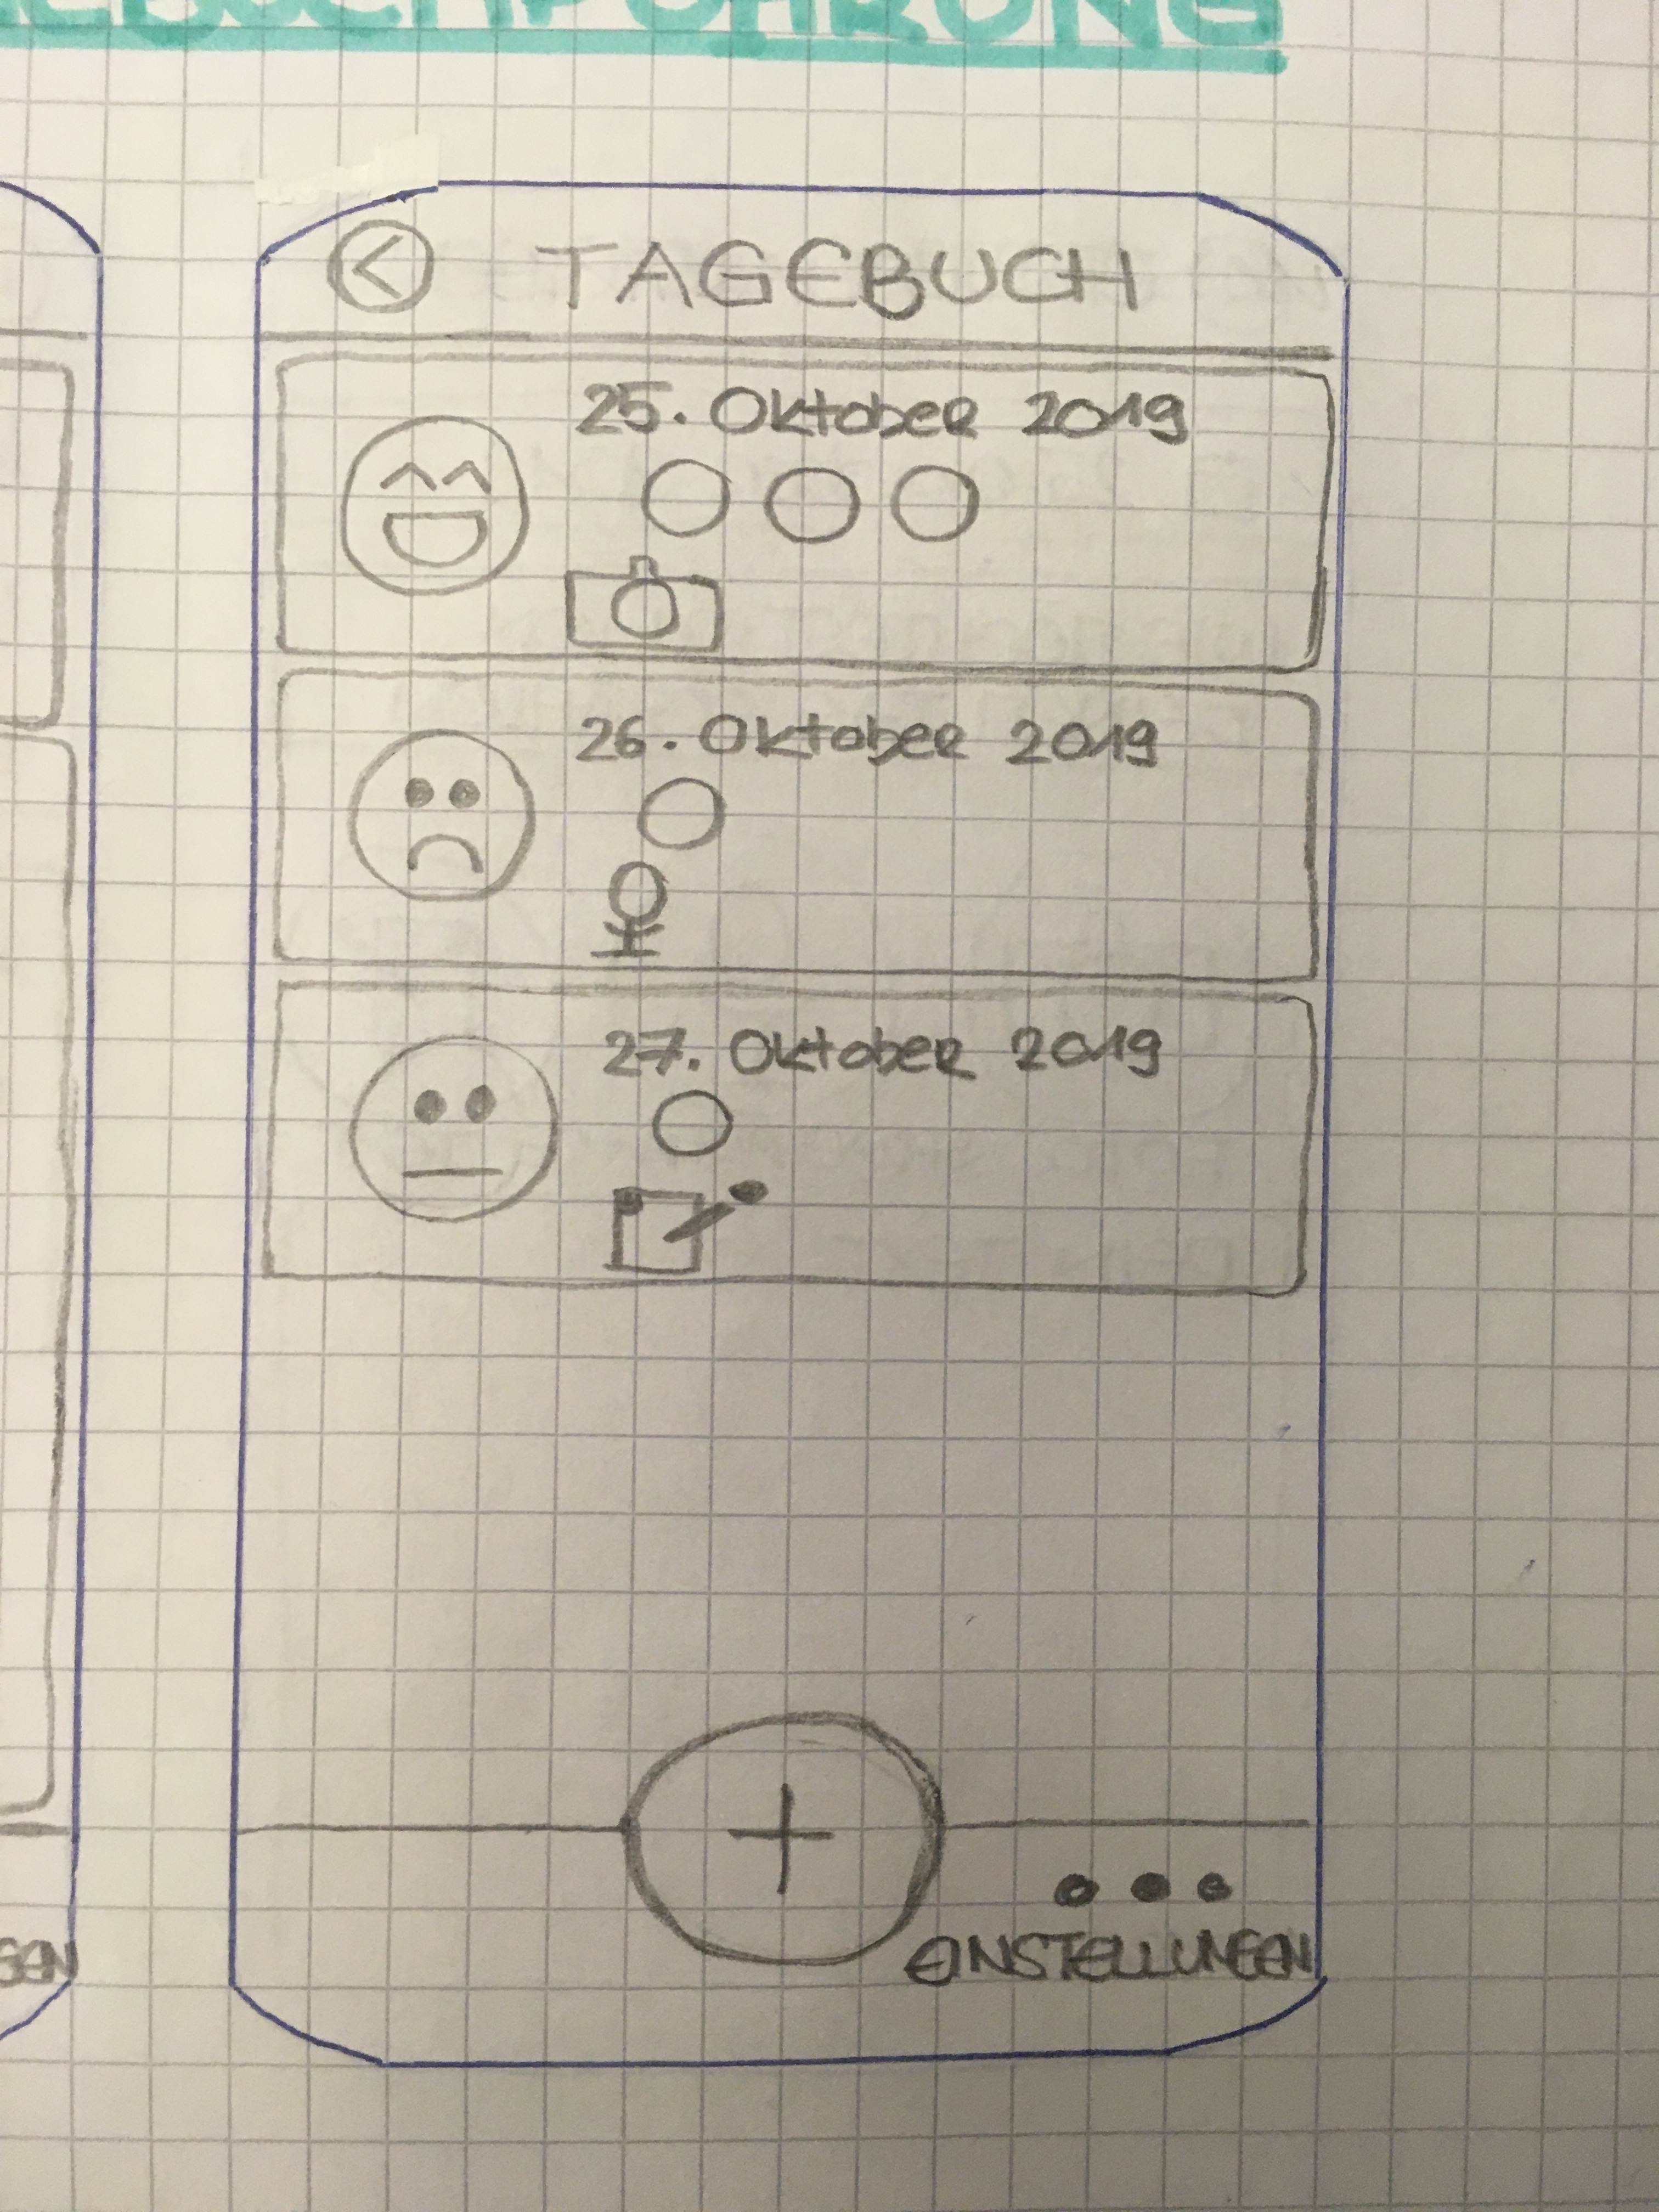 TAGEBUCH
25. Oktober 2019
26. Oktober 2019
27. Oktober 2019
EINSTELLUNGEN